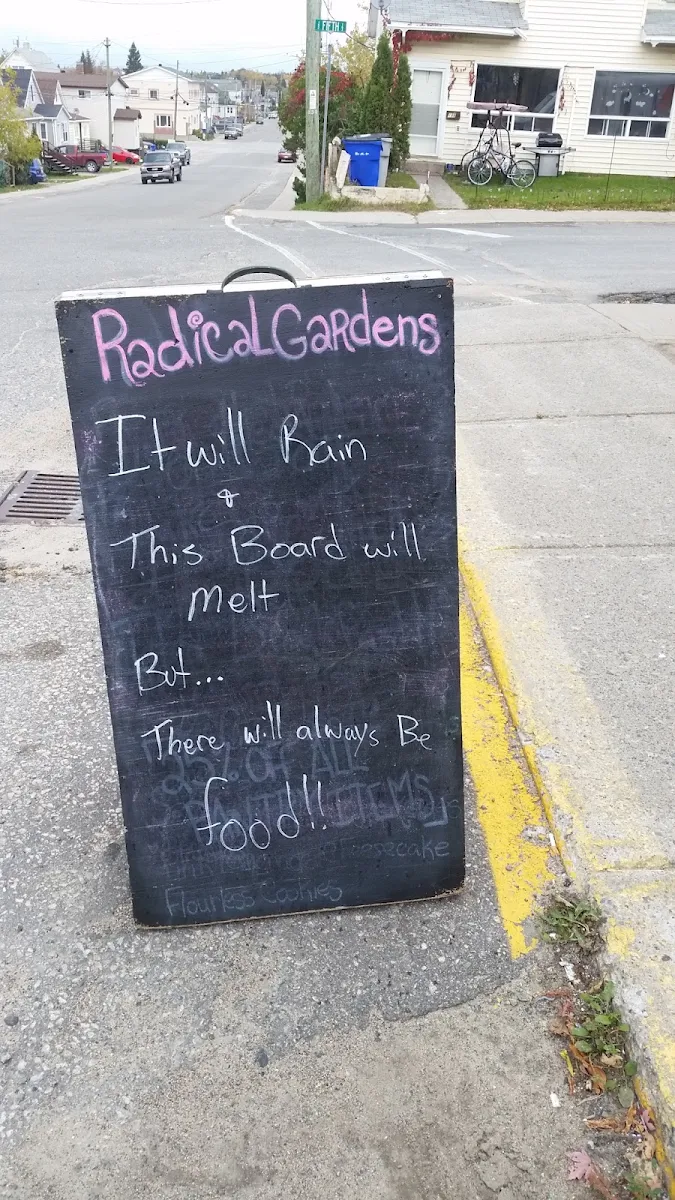 FIFTH
Radical Gardens
It will Rain
&
This Board will
Melt
But...
There will always Be
25% OFF ALL
food!!
ITEMS
cheesecake
Flourless Cookies